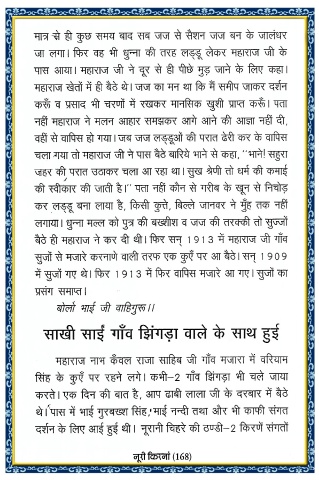 मात्र से ही कुछ समय बाद सब जज से सैशन जज बन के जालंधर
जा लगा। फिर वह भी धुन्ना की तरह लड्डू लेकर महाराज जी के
पास आया। महाराज जी ने दूर से ही पीछे मुड़ जाने के लिए कहा।
महाराज खेतों में ही बैठे थे। जज का मन था कि मैं समीप जाकर दर्शन
करूँ व प्रसाद भी चरणों में रखकर मानसिक खुशी प्राप्त करूँ। पता
नहीं महाराज ने मलन आहार समझकर आगे आने की आज्ञा नहीं दी,
वहीं से वापिस हो गया। जब जज लड्डूओं की परात ढेरी कर के वापिस
चला गया तो महाराज जी ने पास बैठे बारिये भाने से कहा, "भाने! सहुरा
जहर की परात उठाकर चला आ रहा था। सुख श्रेणी तो धर्म की कमाई
की स्वीकार की जाती है।" पता नहीं कौन से गरीब के खून से निचोड़
कर लड्डू बना लाया है, किसी कुत्ते, बिल्ले जानवर ने मुँह तक नहीं
लगाया। धुन्ना मल्ल को पुत्र की बख्शीश व जज की तरक्की तो सुज्जों
बैठे ही महाराज ने कर दी थी। फिर सन् 1913 में महाराज जी गाँव
सुज्जों से मजारे करनाणे वाली तरफ एक कुएँ पर आ बैठे। सन् 1909
में सुज्जों गए थे। फिर 1913 में फिर वापिस मजारे आ गए। सुजों का
प्रसंग समाप्त।
बोलो भाई जी वाहिगुरू।।
साखी साईं गाँव झिंगड़ा वाले के साथ हुई
महाराज नाभ कँवल राजा साहिब जी गाँव मजारा में वरियाम
सिंह के कुएँ पर रहने लगे। कभी-2 गाँव झिंगड़ा भी चले जाया
करते। एक दिन की बात है, आप ढाबी लाला जी के दरबार में बैठे
थे। पास में भाई गुरबख्श सिंह, भाई नन्दी तथा और भी काफी संगत
दर्शन के लिए आई हुई थी। नूरानी चिहरे की ठण्डी-2 किरणें संगतों
नूरी किरनां (168)